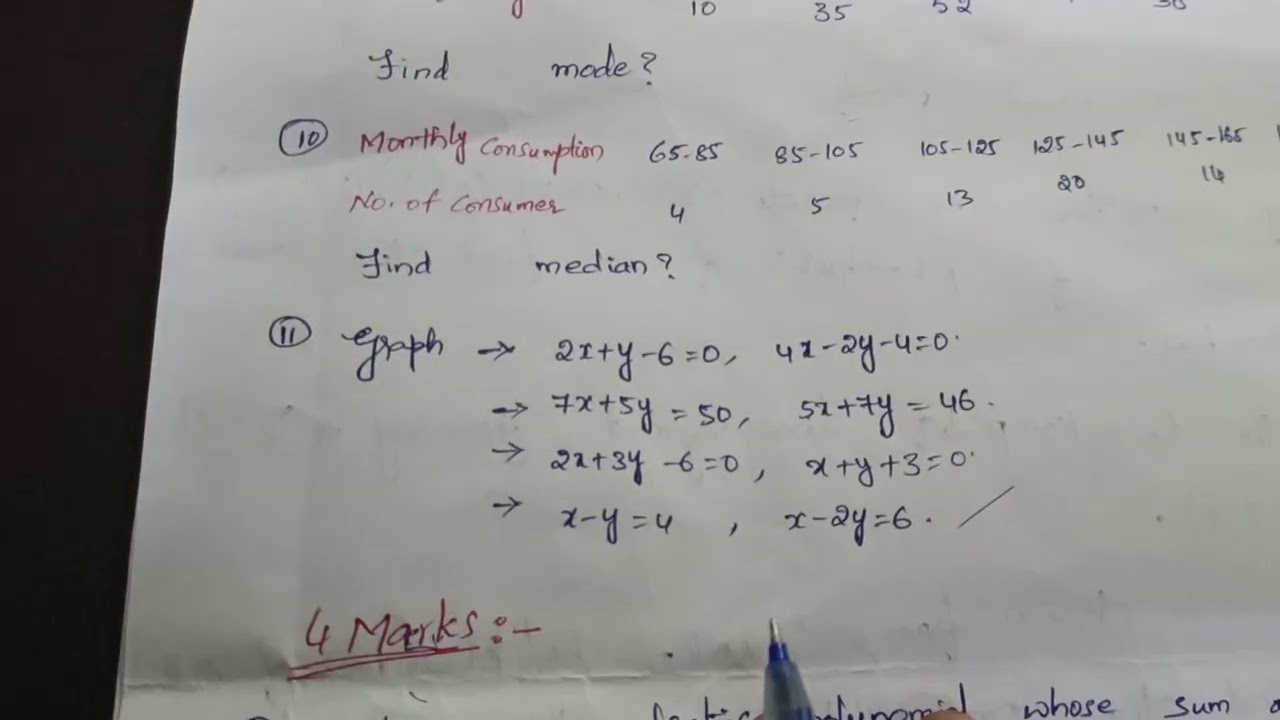 10 35 52
Find mode?
10 Monthly Consumption 65-85 85-105 105-125 125-145 145-165
No. of Consumer 4 5 13 20 14
Find median?
11 Graph → 2x+y-6=0, 4x-2y-4=0.
→ 7x+5y=50, 5x+7y=46.
→ 2x+3y-6=0, x+y+3=0.
→ x-y=4, x-2y=6.
4 Marks:-
whose sum